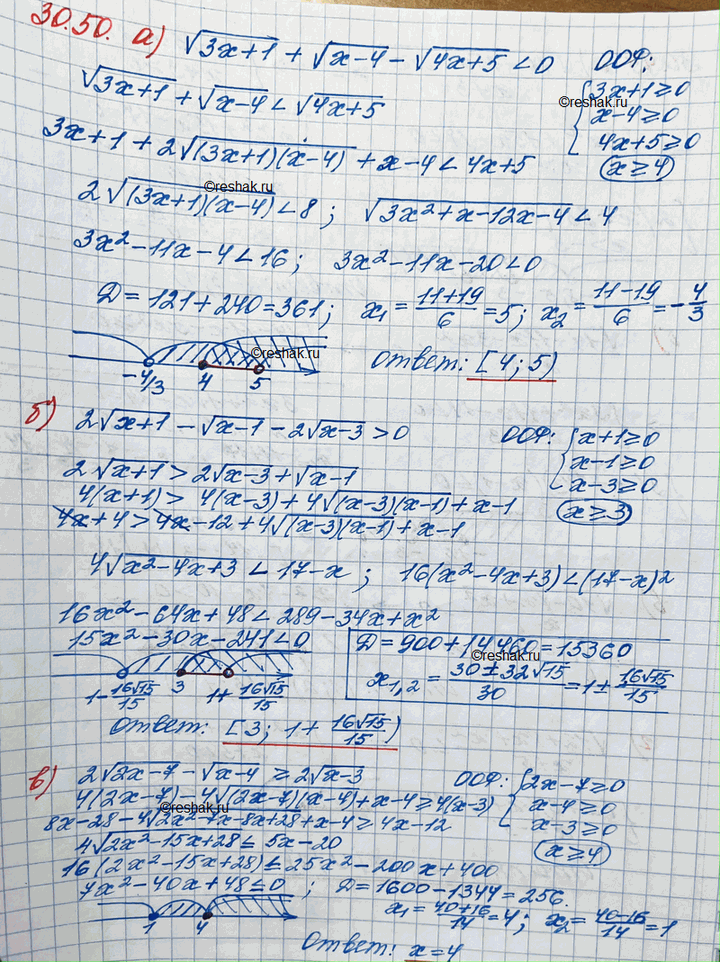 30.50. а) √(3x+1) + √(x-4) - √(4x+5) < 0 ООФ:
√(3x+1) + √(x-4) < √(4x+5) { 3x+1≥0
©reshak.ru
x-4≥0
4x+5≥0
3x+1 + 2√((3x+1)(x-4)) + x-4 < 4x+5 (x≥4)
©reshak.ru
2√((3x+1)(x-4) < 8 ; √(3x²+x-12x-4) < 4
3x²-11x-4 < 16 ; 3x²-11x-20 < 0
D = 121+240=361 ; x₁ = (11+19)/6 = 5; x₂ = (11-19)/6 = -4/3
©reshak.ru
-4/3 4 5 ответ: [4; 5)
б) 2√(x+1) - √(x-1) - 2√(x-3) > 0 ООФ: { x+1≥0
x-1≥0
x-3≥0
2√(x+1) > 2√(x-3) + √(x-1)
4(x+1) > 4(x-3) + 4√((x-3)(x-1)) + x-1 (x≥3)
4x+4 > 4x-12 + 4√((x-3)(x-1)) + x-1
4√(x²-4x+3) < 17-x ; 16(x²-4x+3) < (17-x)²
16x²-64x+48 < 289-34x+x²
15x²-30x-241 < 0 D = 900+14460=15360
©reshak.ru
x₁,₂ = (30±32√15)/30 = 1± 16√15/15
1-16√15/15 3 1+16√15/15
Ответ: [3; 1+ 16√15/15)
в) 2√(2x-7) - √(x-4) ≥ 2√(x-3) ООФ: { 2x-7≥0
x-4≥0
x-3≥0
4(2x-7) - 4√((2x-7)(x-4)) + x-4 ≥ 4(x-3)
©reshak.ru
8x-28-4√(2x²-7x-8x+28) + x-4 ≥ 4x-12
4√(2x²-15x+28) ≤ 5x-20 (x≥4)
16(2x²-15x+28) ≤ 25x²-200x+400
7x²-40x+48≤0 ; D = 1600-1344=256.
x₁ = (40+16)/14 = 4; x₂ = (40-16)/14 = 1
1 4
Ответ: x=4